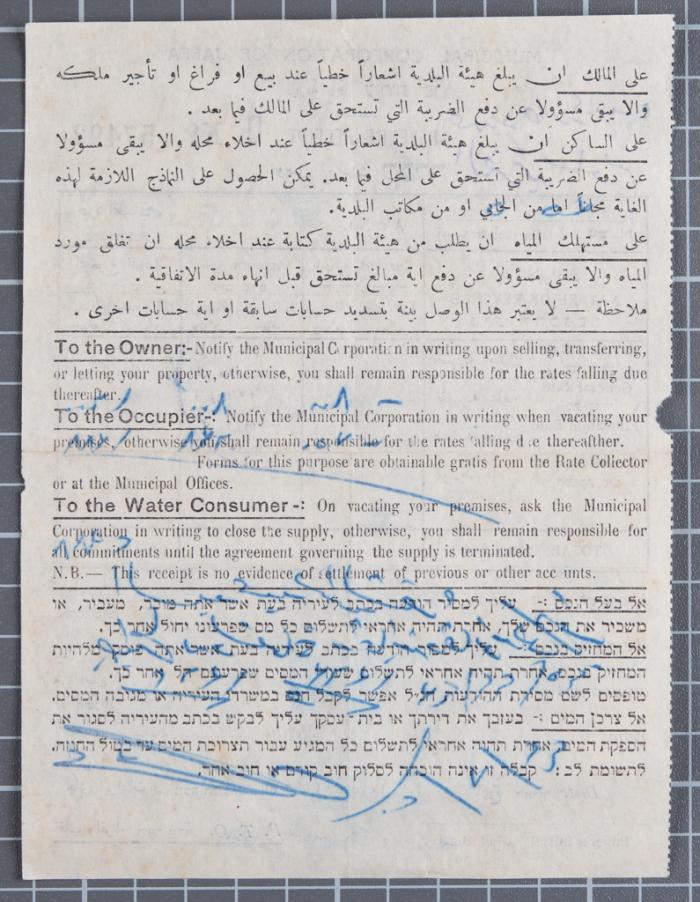 على المالك ان يبلغ هيئة البلدية اشعاراً خطياً عند بيع او فراغ او تأجير ملكه
والا يبقى مسؤولا عن دفع الضريبة التي تستحق على المالك فيما بعد .
على الساكن ان يبلغ هيئة البلدية اشعاراً خطياً عند اخلاء محله والا يبقى مسؤولا
عن دفع الضريبة التي تستحق على المحل فيما بعد. يمكن الحصول على النماذج اللازمة لهذه
الغاية مجاناً اما من الجابي او من مكاتب البلدية.
على مستهلك المياه ان يطلب من هيئة البلدية كتابة عند اخلاء محله ان تغلق مورد
المياه والا يبقى مسؤولا عن دفع اية مبالغ تستحق قبل انهاء مدة الاتفاقية .
ملاحظة — لا يعتبر هذا الوصل بينة بتسديد حسابات سابقة او اية حسابات اخرى .
To the Owner:- Notify the Municipal Corporation in writing upon selling, transferring,
or letting your property, otherwise, you shall remain responsible for the rates falling due
thereafter.
To the Occupier-: Notify the Municipal Corporation in writing when vacating your
premises, otherwise you shall remain responsible for the rates falling due thereafther.
Forms for this purpose are obtainable gratis from the Rate Collector
or at the Municipal Offices.
To the Water Consumer-: On vacating your premises, ask the Municipal
Corporation in writing to close the supply, otherwise, you shall remain responsible for
all commitments until the agreement governing the supply is terminated.
N.B.— This receipt is no evidence of settlement of previous or other acc unts.
אל בעל הנכס :- עליך למסור הודעה בכתב לעיריה בעת אשר אתה מוכר, מעביר, או
משכיר את הנכס שלך, אחרת תהיה אחראי לתשלום כל מס שפרעונו יחול אחר כך.
אל המחזיק בנכס :- עליך למסור הודעה בכתב לעיריה בעת אשר אתה פוסק מלהיות
המחזיק בנכס, אחרת תהיה אחראי לתשלום המסים שפרעונם חל אחר כך.
טופסים לשם מסירת ההודעות הנ"ל אפשר לקבל חנם במשרדי העיריה או מגובה המסים.
אל צרכן המים :- בעזבך את דירתך או בית-עסקך עליך לבקש בכתב מהעיריה לסגור את
הספקת המים, אחרת תהיה אחראי לתשלום כל המגיע עבור תצרוכת המים עד בטול החוזה.
לתשומת לב : קבלה זו אינה הוכחה לסלוק חוב קודם או חוב אחר.